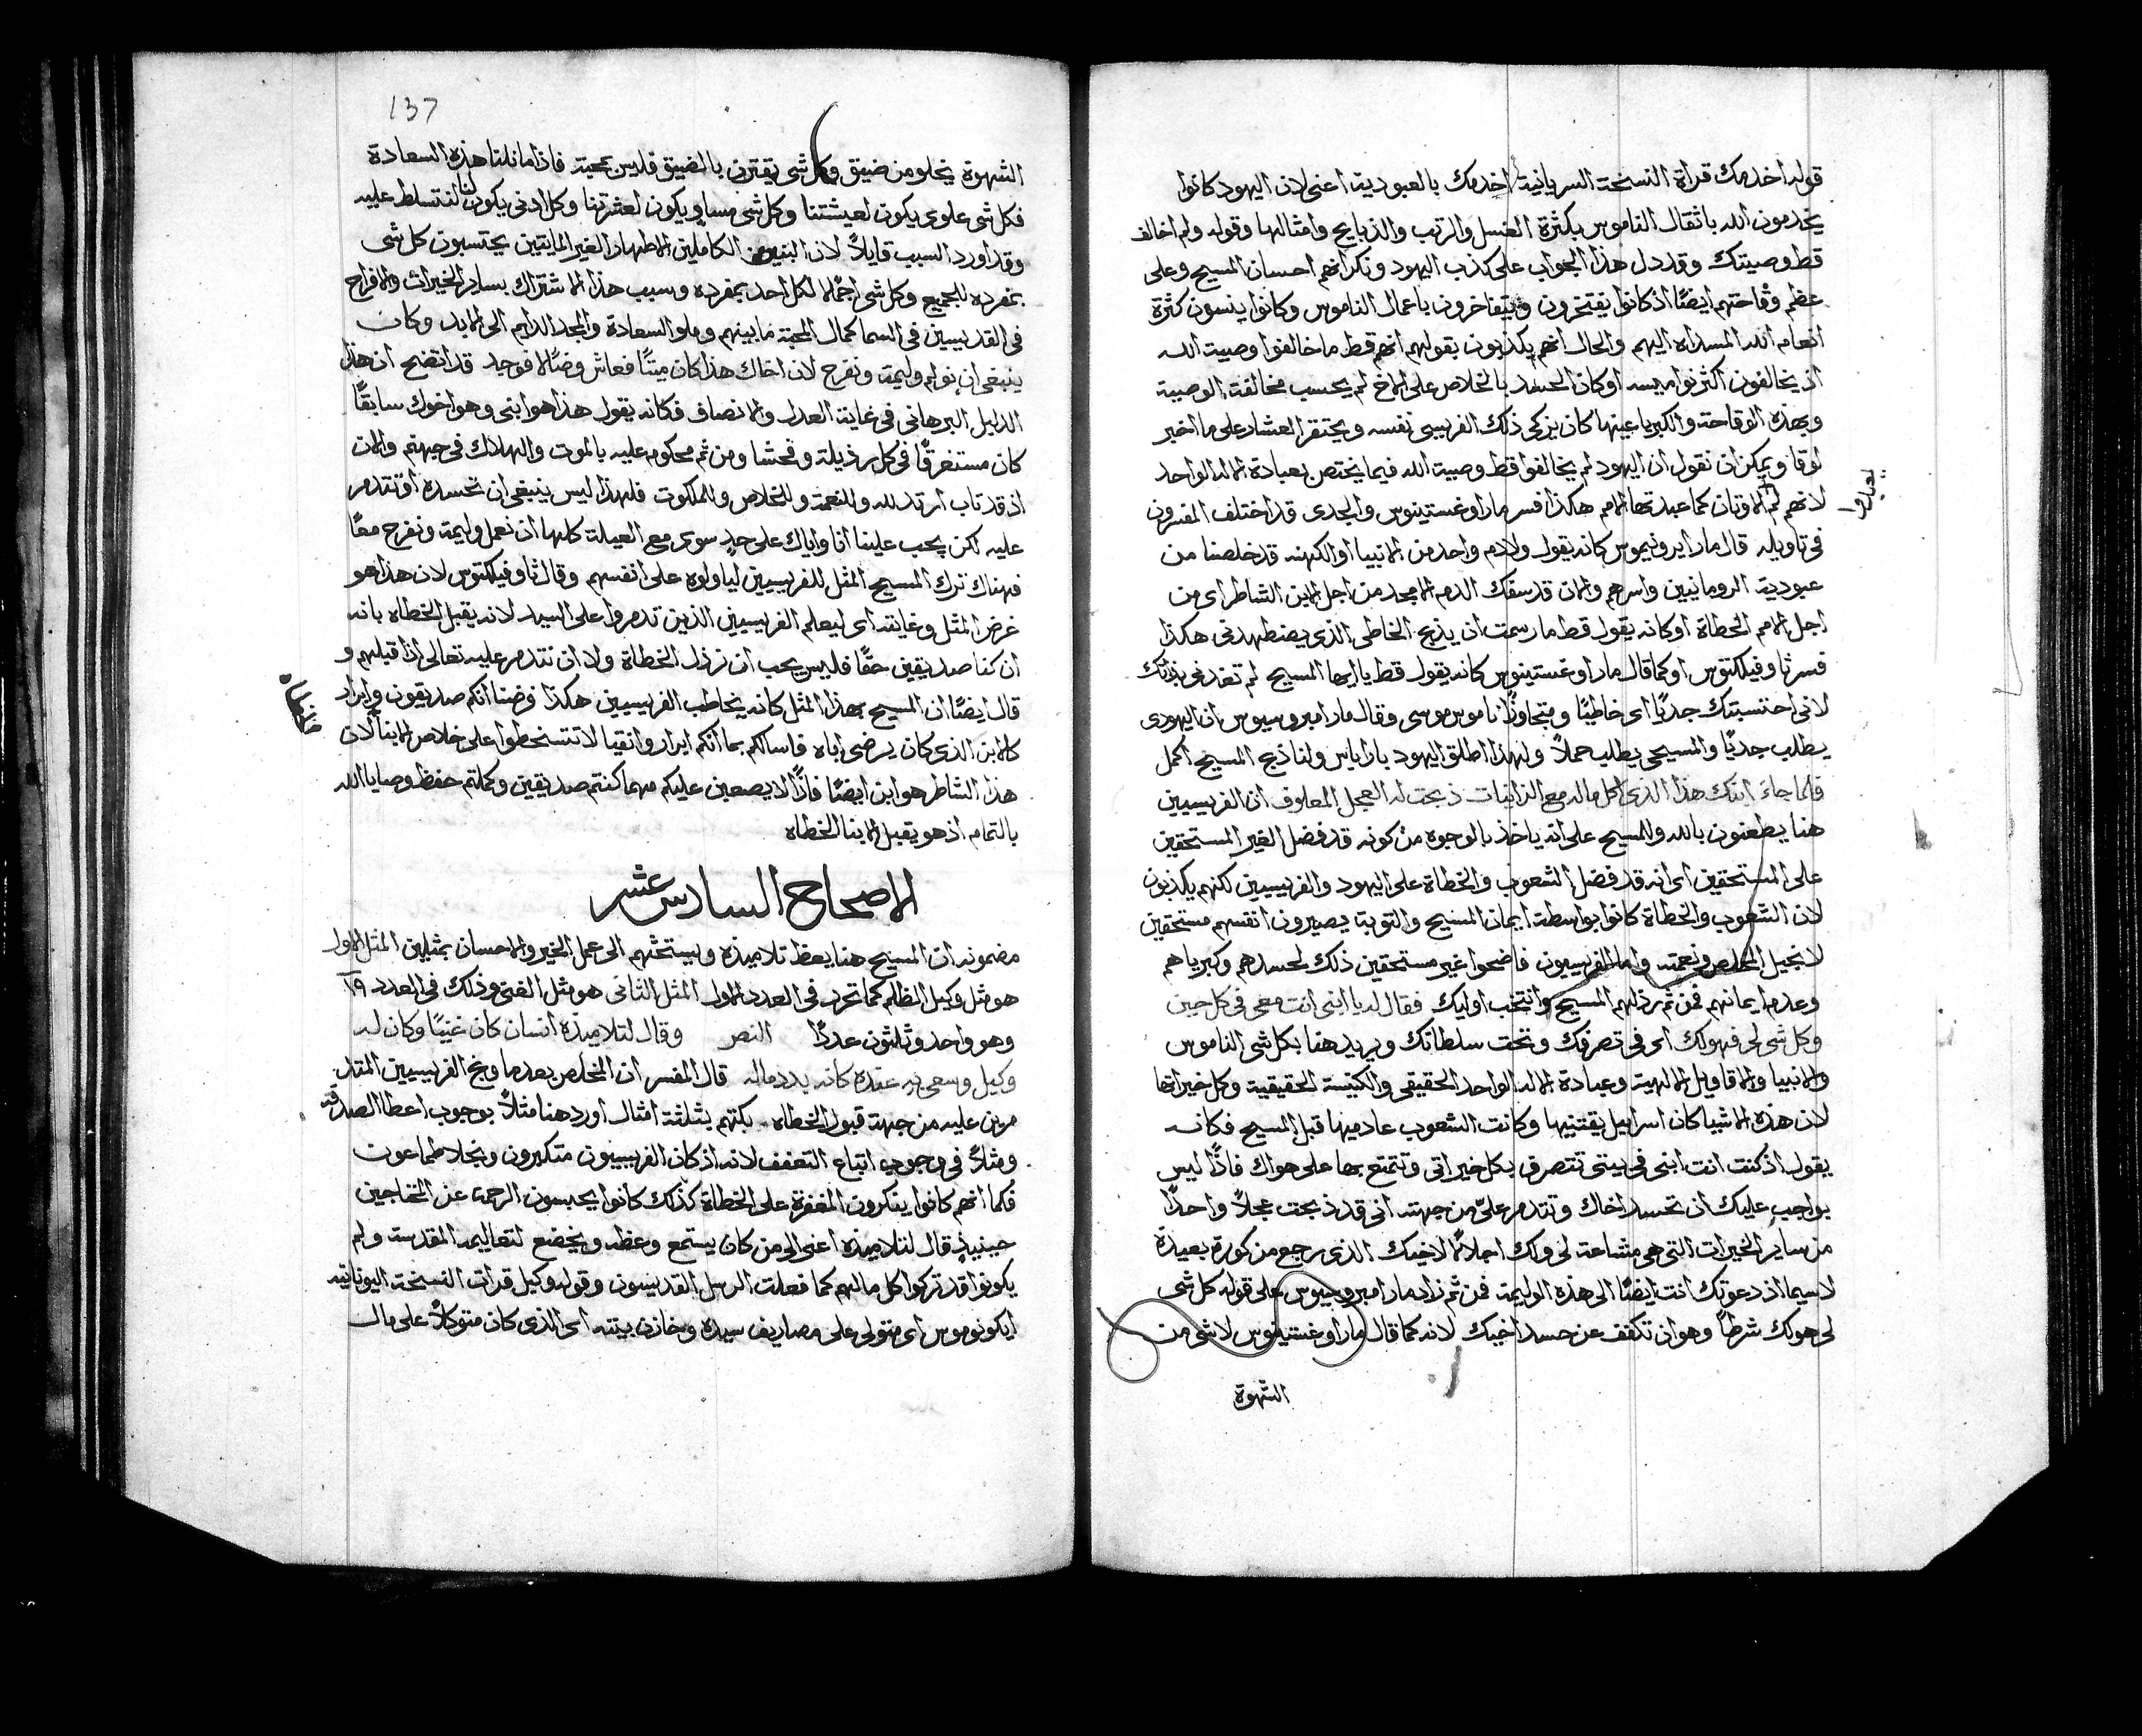 قوله اخدمك قراة النسخة السريانية اخدمك بالعبودية اعنى لان اليهود كانوا
يخدمون الله باثقال الناموس بكثرة الغسل والرتب والذبايح وامثالها وقوله ولم اخالف
قط وصيتك وقد دل هذا الجواب على كذب اليهود ونكرانهم احسان المسيح وعلى
عظم وقاحتهم ايضًا اذ كانوا يفتخرون ويتفاخرون باعمال الناموس وكانوا ينسون كثرة
انعام الله المسداه اليهم والحال انهم يكذبون بقولهم انهم قط ما خالفوا وصية الله
اذ يخالفون اكثر نواميسه او كان الحسد بالخلاص على الاخ لم يحسب مخالفة الوصية
وبهذه الوقاحة والكبريا عينها كان يزكى ذلك الفريسى نفسه ويحتقر العشار على ما اخبر
لوقا ويمكن ان نقول ان اليهود لم يخالفوا قط وصية الله فيما يختص بعبادة الاله الواحد
لانهم لم الاوثان كما عبدتها الامم هكذا فسر مار اوغستينوس والجدى قد اختلف المفسرون
يعبدوا
فى تاويله قال مار ايرونيموس كانه يقول ولا دم واحد من الانبيا او الكهنه قد خلصنا من
عبودية الرومانيين واسرهم والان قد سفك الدم الامجد من اجل الابن الشاطر اى من
اجل الامم الخطاة او كانه يقول قط ما رسمت ان يذبح الخاطى الذى يضطهدنى هكذا
فسر ثاوفيلكتوس او كما قال مار اوغستينوس كانه يقول قط يا ايها المسيح لم تغدنى بذاتك
لانى احتسبتك جديًا اى خاطيًا ومتجاوزًا ناموس موسى وقال مار امبروسيوس ان اليهودى
يطلب جديًا والمسيحى يطلب حملاً ولهذا اطلق اليهود باراباس ولنا ذبح المسيح اكمل
فلما جاء ابنك هذا الذى اكل ماله مع الزانيات ذبحت له العجل المعلوف ان الفريسيين
هنا يطعنون بالله وللمسيح على انه ياخذ بالوجوه من كونه قد فضل الغير المستحقين
على المستحقين اى انه قد فضل الشعوب والخطاة على اليهود والفريسيين لكنهم يكذبون
لان الشعوب والخطاة كانوا بواسطة ايمان المسيح والتوبة يصيرون انفسهم مستحقين
لانجيل المخلص ونعمته واما الفريسيون فاضحوا غير مستحقين ذلك لحسدهم وكبرياهم
وعدم ايمانهم فمن ثم رذلهم المسيح وانتخب اوليك فقال له يا ابنى انت معى فى كل حين
وكل شى لى فهو لك اى فى تصرفك وتحت سلطانك ويريد هنا بكل شى الناموس
والانبيا والاقاويل الالهية وعبادة الاله الواحد الحقيقى والكنيسة الحقيقية وكل خيراتها
لان هذه الاشيا كان اسراييل يقتنيها وكانت الشعوب عادميها قبل المسيح فكانه
يقول اذ كنت انت ابنى فى بيتى تتصرف بكل خيراتى وتتمتع بها على هواك فاذًا ليس
بواجب عليك ان تحسد اخاك وتتدمر علىّ من جهته انى قد ذبحت عجلاً واحدًا
من ساير الخيرات التى هى مشاعة لى ولك اجلالاً لاخيك الذى رجع من كورة بعيدة
لاسيما اذ دعوتك انت ايضًا الى هذه الوليمة فمن ثم زاد مار امبروسيوس على قوله كل شى
لى هو لك شرطاً وهو ان تكفف عن حسد اخيك لانه كما قال مار اوغستينوس لا شى من
الشهوة
137
الشهوة يخلو من ضيق وكل شى يقترن بالضيق فليس بمحبة فاذا ما نلنا هذه السعادة
فكل شى علوى يكون لعيشتنا وكل شى مساوٍ يكون لعشرتنا وكل ادنى يكون لنا لنتسلط عليه
وقد اورد السبب قايلاً لان البنين الكاملين الاطهار الغير المايتين يحتسبون كل شى
بمفرده للجميع وكل شى اجمالا لكل احد بمفرده وسبب هذا الاشتراك بساير الخيرات والافراح
فى القديسين فى السما كمال المحبة ما بينهم وملو السعادة والمجد الدايم الى الابد وكان
ينبغى ان نولم وليمة ونفرح لان اخاك هذا كان ميتًا فعاش وضالا فوجد قد اتضح ان هذا
الدليل البرهانى فى غاية العدل والانصاف فكانه يقول هذا هو ابنى وهو اخوك سابقًا
كان مستغرقًا فى كل رذيلة وفحشا ومن ثم محكوم عليه بالموت والهلاك فى جهنم والان
اذ قد تاب ارتد لله وللنعمة وللخلاص وللملكوت فلهذا ليس ينبغى ان تحسده او تتدمر
عليه لكن يجب علينا انا واياك على حدٍ سوى مع العيلة كلها ان نعمل وليمة ونفرح معًا
فهناك ترك المسيح المثل للفريسيين لياولوه على انفسهم وقال ثاوفيلكتوس لان هذا هو
غرض المثل وغايته اى ليعلم الفريسيين الذين تدمروا على السيد لانه يقبل الخطاه بانه
ان كنا صديقين حقًا فليس يجب ان نرذل الخطاة ولا ان نتدمر عليه تعالى اذا قبلهم و
قال ايضًا ان المسيح بهذا المثل كانه يخاطب الفريسيين هكذا فرضنا انكم صديقون وابرار
كالابن الذى كان يرضى اباه فاسالكم بما انكم ابرار واتقيا لا تتسخطوا على خلاص الابنا لان
هذا الشاطر هو ابن ايضًا فاذًا لا يصعبن عليكم مهما كنتم صديقين وكملتم حفظ وصايا الله
بالتمام اذ هو يقبل الابنا الخطاه
الاصحاح السادس عشر
مضمونه ان المسيح هنا يعظ تلاميذه ويستحثهم الى عمل الخير والاحسان بمثلين المثل الاول
هو مثل وكيل الظلم كما تحرر فى العدد الاول المثل الثانى هو مثل الغنى وذلك فى العدد ١٩
وهو واحد وثلثون عددًا النص وقال لتلاميذه انسان كان غنيًا وكان له
وكيل وسعى به عنده كانه يبدد ماله قال المفسر ان المخلص بعدما وبخ الفريسيين المتقد
مرين عليه من جهة قبول الخطاه بكتهم بثلثة امثال اورد هنا مثلاً بوجوب اعطا الصدقة
ومثلاً فى وجوب اتباع التعفف لانه اذ كان الفريسيون متكبرون وبخلا طماعون
فكما انهم كانوا ينكرون المغفرة على الخطاة كذلك كانوا يحبسون الرحمة عن المحتاجين
حينيذٍ قال لتلاميذه اعنى الى من كان يستمع وعظه ويخضع لتعاليمه المقدسة ولم
يكونوا قد تركوا كل مالهم كما فعلت الرسل القديسون وقوله وكيل قرات النسخة اليونانيه
ايكونوموس اى متولى على مصاريف سيده وخازن بيته اى الذى كان متوكلاً على مال